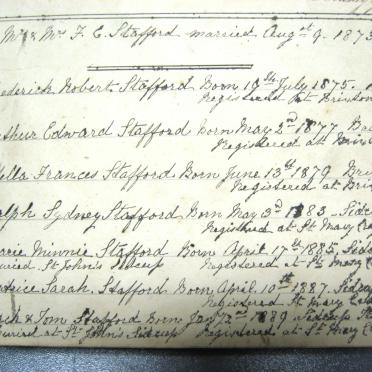 Mr & Mrs F. C. Stafford married Augst 9. 1873
ederick Robert Stafford Born 19th July 1875.
Registered at Brixton
thur Edward Stafford Born May 2nd 1877 Br
Registered at Brix
ella Frances Stafford Born June 13th 1879 Br
Registered at Bri
alph Sydney Stafford Born May 3rd 1883 - Sidcu
Registered at St Mary Cra
arie Minnie Stafford Born April 17th 1885. Sidcu
uried St. John's Sidcup Registered at St Mary Cra
atrice Sarah. Stafford Born April 10th 1887. Sidcup
Registered St Mary
ck & Tom Stafford Born Jany 2nd 1889 Sidcup
uried at St John's Sidcup Registered at St Mary